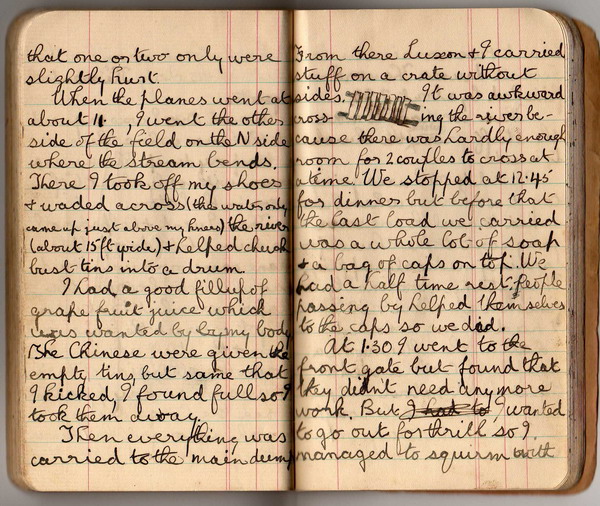 that one or two only were
slightly hurt.
When the planes went at
about 11 , I went the other
side of the field on the N side
where the stream bends.
There I took off my shoes
& waded across (the water only
came up just above my knees) the river
(about 15 ft wide) & helped chuck
bust tins into a drum.
I had a good fillup of
grape fruit juice which
was wanted by my body
The Chinese were given the
empty tins, but some that
I kicked, I found full so I
took them away.
Then everything was
carried to the main dump
From there Luxon & I carried
stuff on a crate without
sides. It was awkward
cross- ing the river be-
cause there was hardly enough
room for 2 couples to cross at
a time. We stopped at 12.45
for dinner but before that
the last load we carried
was a whole lot of soap
& a bag of caps on top. We
had a half time rest. People
passing by helped themselves
to the caps so we did.
At 1.30 I went to the
front gate but found that
they didn't need any more
work. But I had to I wanted
to go out for thrill so I
managed to squirm with